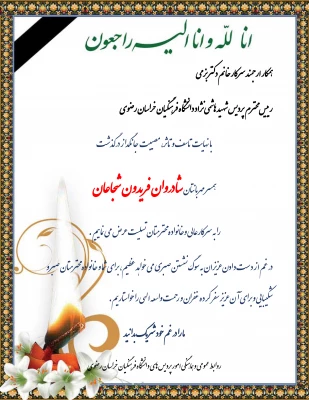 انا لله و انا الیه راجعون
همکار ارجمند سرکار خانم دکتر بزمی
رییس محترم پردیس شهید هاشمی نژاد دانشگاه فرهنگیان خراسان رضوی
با نهایت تاسف و تاثر، مصیبت جانگداز درگذشت
همسر مهربانتان شادروان فریدون شجاعان
را به سرکار عالی و خانواده محترمتان تسلیت عرض می نماییم .
در غم از دست دادن عزیزان به سوگ نشستن صبری می خواهد عظیم، برای شما و خانواده محترمتان صبر و
شکیبایی و برای آن عزیز سفر کرده غفران و رحمت واسعه الهی را خواستاریم .
ما را در غم خود شریک بدانید
روابط عمومی و هماهنگی امور پردیس های دانشگاه فرهنگیان خراسان رضوی